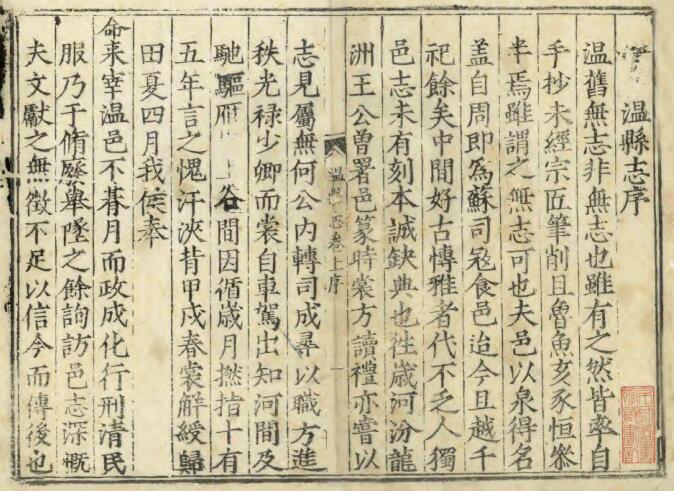 温縣志序
温舊無志非無志也雖有之然皆率自
手抄未經宗匠筆削且魯魚亥豕恒叅
半焉雖謂之無志可也夫邑以泉得名
盖自周即為蘇司寇食邑迨今且越千
祀餘矣中間好古慱雅者代不乏人獨
邑志未有刻本誠缺典也徃歲河汾龍
洲王公曽署邑篆時裳方讀禮亦嘗以
温縣志卷上序
志見屬無何公内轉司成尋以職方進
秩光禄少卿而裳自車駕出知河間及
馳驅雁谷間因循歳月撚指十有
五年言之愧汗浹背甲戍春裳解綬歸
田夏四月我侯奉
命来宰温邑不朞月而政成化行刑清民
服乃于脩廢舉墜之餘詢訪邑志深慨
夫文獻之無徵不足以信今而傳後也